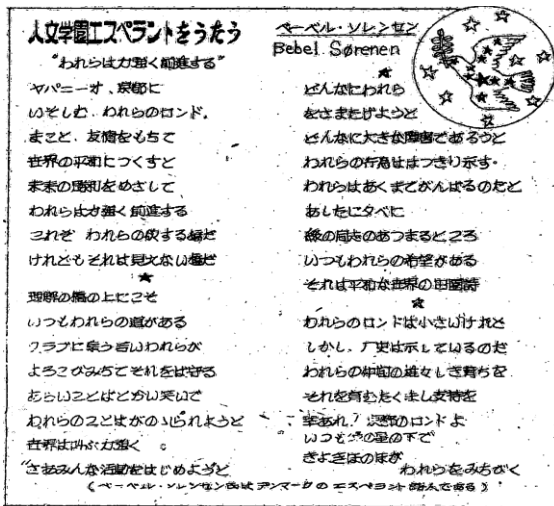 人文学園エスペラントをうたう
"われらは力強く前進する"
ヤパニーオ、京都に
いそしむ、われらのロンド、
まこと、友情をもちて
世界の平和につくすと
未来の勝利をめざして
われらは力強く前進する
これぞ われらの欲する橋だ
けれどもそれは見えない橋だ
★
理解の橋の上にこそ
いつもわれらの道がある
クラブに集う若いわれらが
よろこびみちてそれを守る
あらいことばとかい笑いで
われらのことばがののしられようと
世界は叫ぶ力強く
さあみんな活動をはじめようと
ベーベル・ソレンセン
Bebel Sørenen
★
どんなにわれら
をさまたげようと
どんなに大きな障害であろうと
われらの行為ははっきり示す、
われらはあくまでがんばるのだと
あしたにタベに
緑の同志のあつまるところ
いつもわれらの希望がある
それは平和な世界の
★
われらのロンドは小さいけれど
しかし、歴史は示しているのだ
われらの仲間の雄々しき育ちを
それを育むたくましき支持を
幸あれ!京都のロンドよ
いつも緑の星の下で
きよきほのほが
われらをみちびく
(ベーベル・ソレンセン氏はデンマークのエスペラント詩人である)